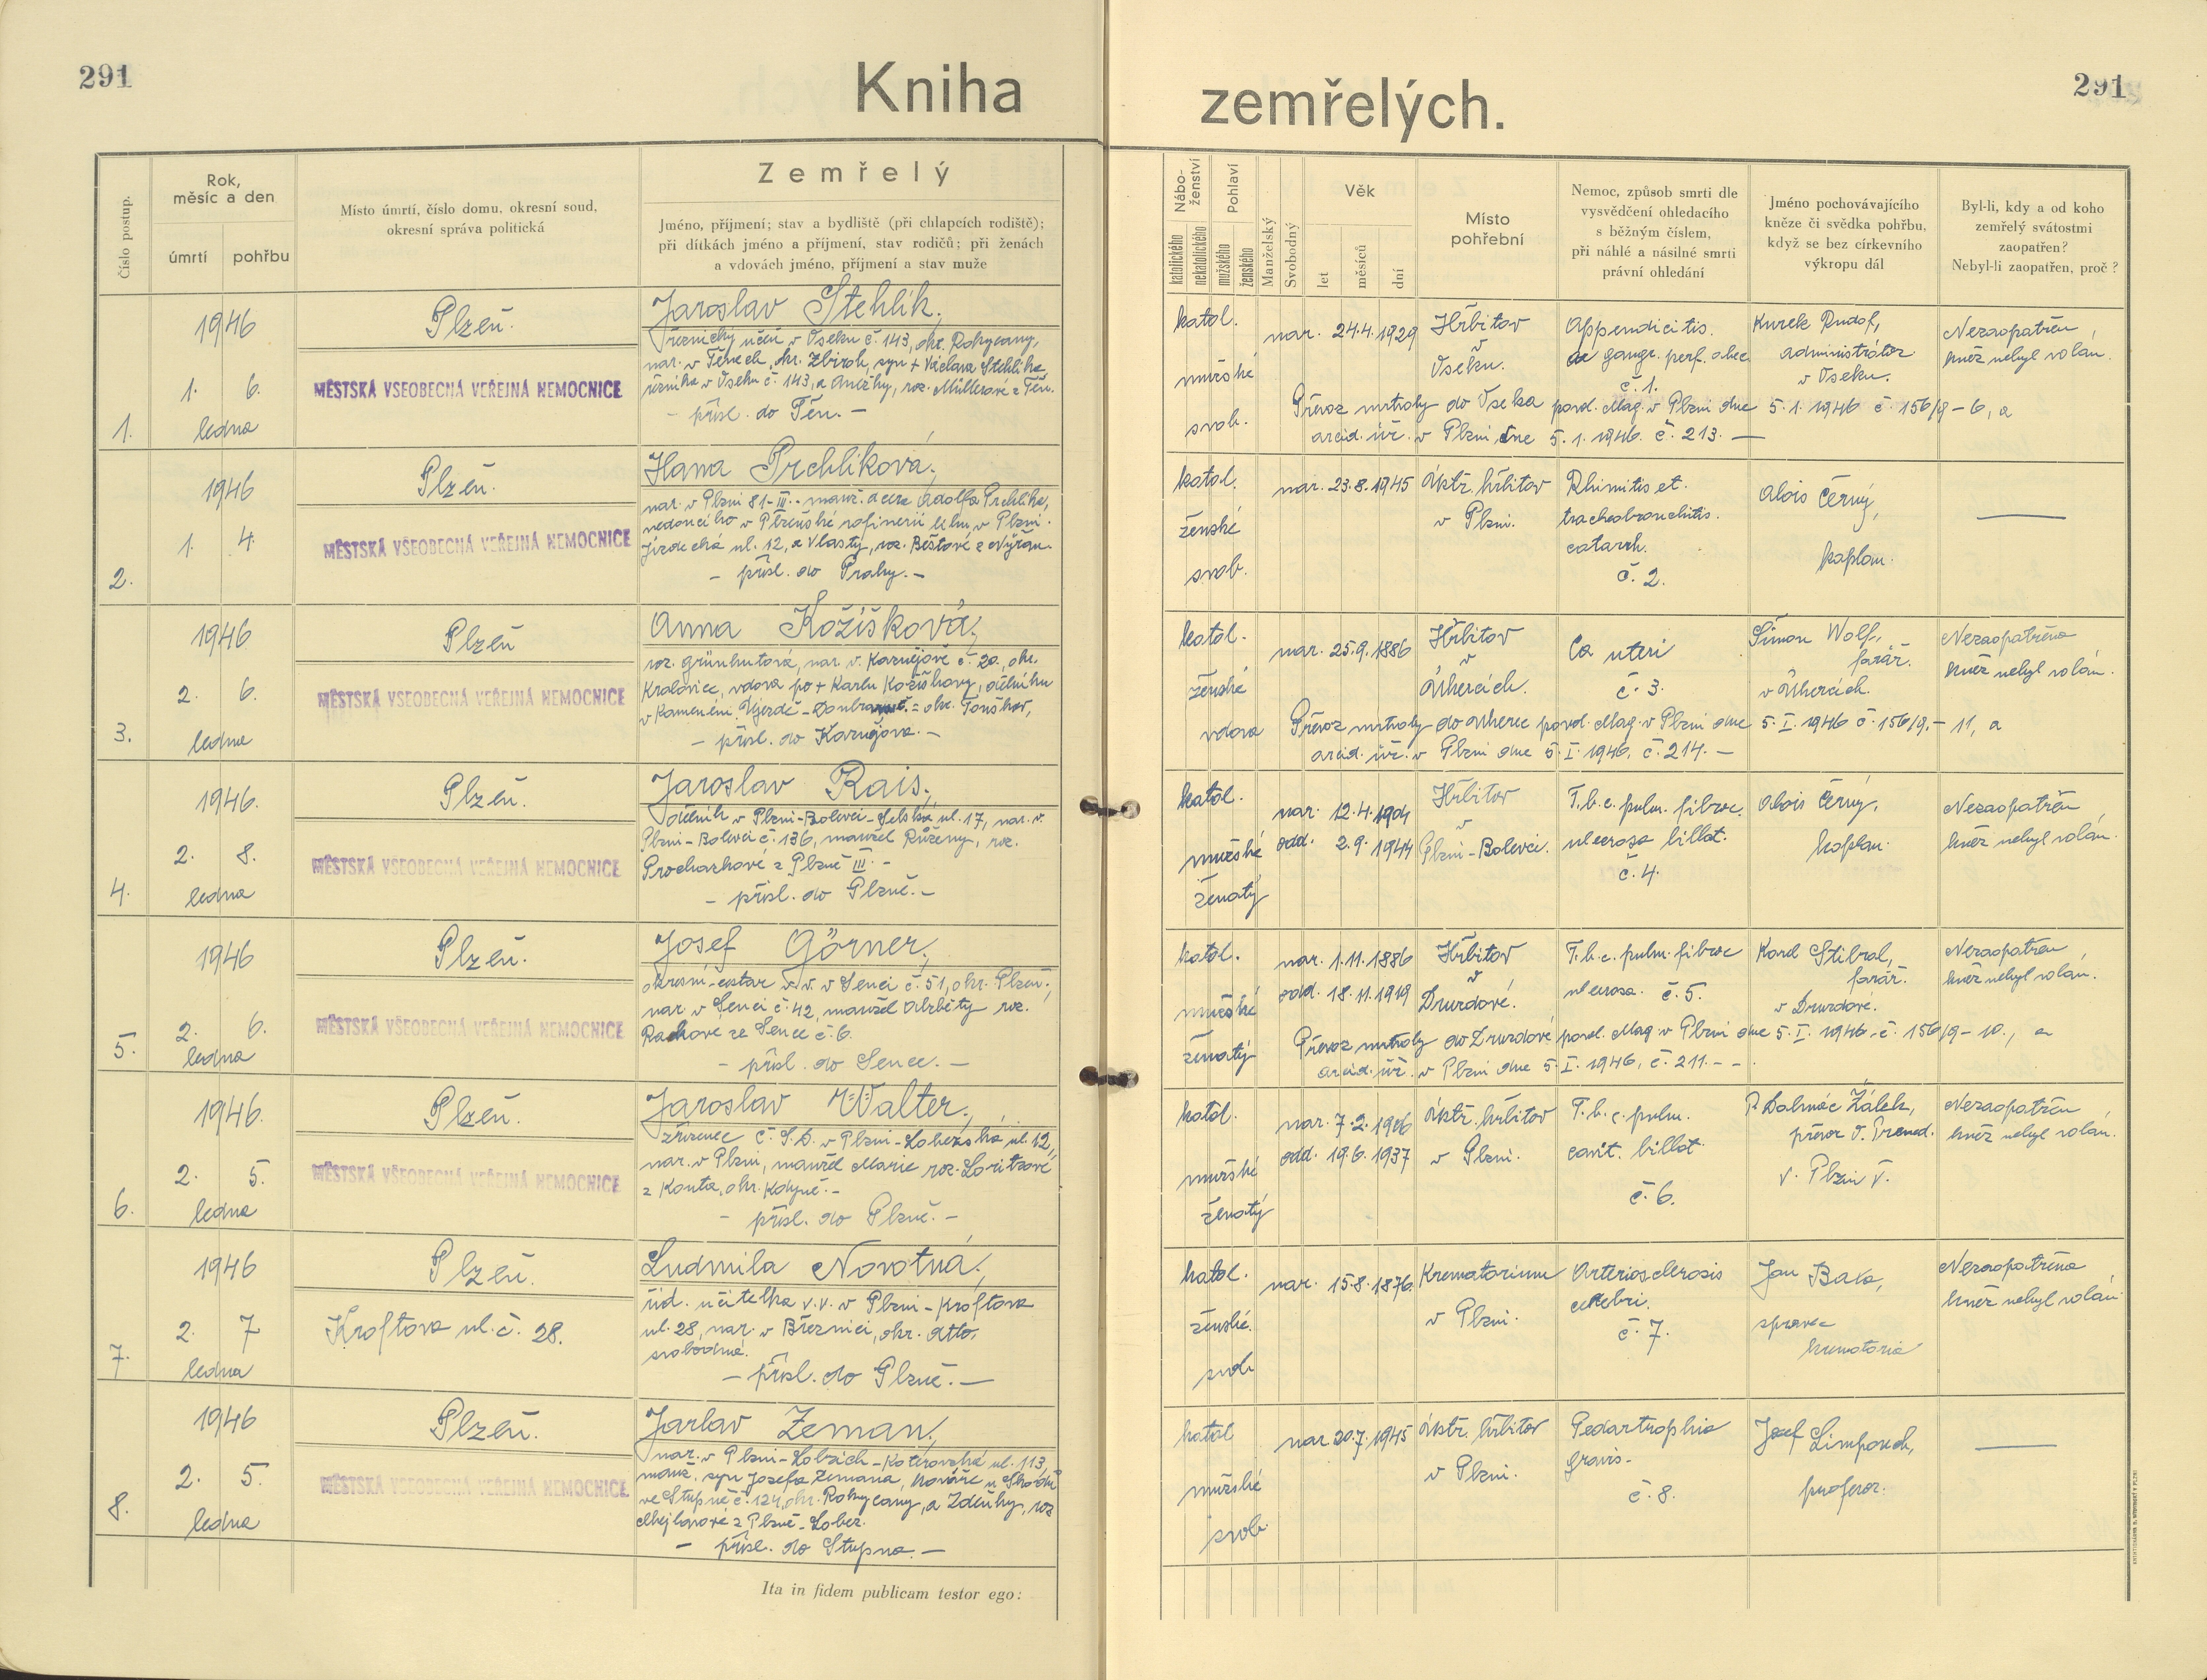 291
Kniha
zemřelých.
291
Číslo postup.
Rok,
měsíc a den
úmrtí
pohřbu
Místo úmrtí, číslo domu, okresní soud,
okresní správa politická
Zemřelý
Jméno, příjmení; stav a bydliště (při chlapcích rodiště);
při dítkách jméno a příjmení, stav rodičů; při ženách
a vdovách jméno, příjmení a stav muže
Nábo-
ženství
katolického
nekatolického
Pohlaví
mužského
ženského
Manželský
Svobodný
Věk
let
měsíců
dní
Místo
pohřební
Nemoc, způsob smrti dle
vysvědčení ohledacího
s běžným číslem,
při náhlé a násilné smrti
právní ohledání
Jméno pochovávajícího
kněze či svědka pohřbu,
když se bez církevního
výkropu dál
Byl-li, kdy a od koho
zemřelý svátostmi
zaopatřen?
Nebyl-li zaopatřen, proč?
1.
1946
1. 6.
ledna
Plzeň.
MĚSTSKÁ VŠEOBECNÁ VEŘEJNÁ NEMOCNICE
Jaroslav Stehlík,
řeznický učeň v Oseku č. 143, okr. Rokycany,
nar. v Těnech, okr. Zbiroh, syn + Václava Stehlíka,
řezníka v Oseku č. 143, a Anežky, roz. Müllerové z Těn.
- přísl. do Těn. -
katol.
mužské
svob.
nar. 24.4.1929
Hřbitov
v
Oseku.
Appendicitis.
gangr. perf. absc.
č. 1.
Kurek Rudof,
administrátor
v Oseku.
Nezaopatřen,
kněz nebyl volán.
Převoz mrtvoly do Oseka povol. Mag. v Plzni dne 5.1.1946 č. 156/9-6, a
arcid. úř. v Plzni dne 5.1.1946. č. 213. -
2.
1946
1. 4.
Plzeň.
MĚSTSKÁ VŠEOBECNÁ VEŘEJNÁ NEMOCNICE
Hana Prchlíková,
nar. v Plzni 81-III.- manž. dcera Adolfa Prchlíka,
v Plzeňské rafinerii lihu v Plzni.
Jízdecká ul. 12, a Vlasty, roz. Beštové z Nýřan.
- přísl. do Prahy. -
katol.
ženské
svob.
nar. 23.8.1945
Ústř. hřbitov
v Plzni.
Rhinitis et.
tracheobronchitis.
catarrh.
č. 2.
Alois Černý,
kaplan.
3.
1946
2. 6.
ledna
Plzeň
MĚSTSKÁ VŠEOBECNÁ VEŘEJNÁ NEMOCNICE
Anna Kožíšková,
roz. Grünhutová, nar. v. Kaznějově č. 20, okr.
Kralovice, vdova po + Karlu Kožíškovi, dělníku
v Kamenném Újezdě - okr.
- přísl. do Kaznějova. -
katol.
ženské
vdova
nar. 25.9.1886
Hřbitov
v
Úhercích.
Ca uteri
č. 3.
Šimon Wolf,
farář.
v Úhercích.
Nezaopatřena
kněz nebyl volán.
Převoz mrtvoly do Úherec povol. Mag. v Plzni dne 5.I.1946 č. 156/9.- 11, a
arcid. úř. v Plzni dne 5.I.1946. č. 214. -
4.
1946.
2. 8.
ledna
Plzeň.
MĚSTSKÁ VŠEOBECNÁ VEŘEJNÁ NEMOCNICE
Jaroslav Rais,
dělník v Plzni-Bolevci-Selská ul. 17, nar. v.
Plzni-Bolevci č. 136, manžel Růženy, roz.
Procházkové z Plzně III. -
- přísl. do Plzně. -
katol.
mužské
ženatý
nar. 12.4.1904
odd. 2.9.1944
Hřbitov
v
Plzni-Bolevci.
T.b.c. pulm. fibroc.
ulcerosa billat.
č. 4.
Alois Černý,
kaplan.
Nezaopatřen
kněz nebyl volán.
5.
1946
2. 6.
ledna
Plzeň.
MĚSTSKÁ VŠEOBECNÁ VEŘEJNÁ NEMOCNICE
Josef Görner,
okresní cestář v.v. v Senci č. 51, okr. Plzeň,
nar. v Senci č. 42, manžel Alžběty roz.
ze Sence č. 6.
- přísl. do Sence. -
katol.
mužské
ženatý
nar. 1.11.1886
odd. 18.11.1919
Hřbitov
v
Druzdové.
T.b.c. pulm. fibroc
ulcerosa. č. 5.
Karel Stibral,
farář.
v Druzdové.
Nezaopatřen
kněz nebyl volán.
Převoz mrtvoly do Druzdové povol. Mag. v Plzni dne 5.I.1946. č. 156/9-10., a
arcid. úř. v Plzni dne 5.I.1946, č. 211. - -
6.
1946.
2. 5.
ledna
Plzeň.
MĚSTSKÁ VŠEOBECNÁ VEŘEJNÁ NEMOCNICE
Jaroslav Walter,
zřízenec Č.S.D. v Plzni-Lobezská ul. 12,
nar. v Plzni, manžel Marie roz.
z Kouta, okr. Kdyně. -
- přísl. do Plzně. -
katol.
mužské
ženatý
nar. 7.2.1906
odd. 19.6.1937
Ústř. hřbitov
v Plzni.
T.b.c. pulm.
cavit. billat.
č. 6.
P. Dalmác Žálek,
převor
v. Plzni V.
Nezaopatřen
kněz nebyl volán.
7.
1946
2. 7
ledna
Plzeň.
Kroftova ul. č. 28.
Ludmila Novotná,
říd. učitelka v.v. v Plzni-Kroftova
ul. 28, nar. v Březnici, okr. dtto,
svobodná.
- přísl. do Plzně. -
katol.
ženské.
svob
nar. 15.8.1876.
Krematorium
v Plzni.
Arteriosclerosis
cerebri.
č. 7.
Jan
správce
krematoria
Nezaopatřena
kněz nebyl volán.
8.
1946
2. 5.
ledna
Plzeň.
MĚSTSKÁ VŠEOBECNÁ VEŘEJNÁ NEMOCNICE
Jarlav Zeman,
nar. v Plzni-Lobzích-Koterovská ul. 113,
manž. syn Josefa Zemana, kováře u
ve Stupně č. 124, okr. Rokycany, a Zdeňky, roz
z Plzně-Lobez.
- přísl. do Stupna. -
katol
mužské
svob.
nar 20.7.1945
Ústř. hřbitov
v Plzni.
Pedartrophia
gravis-
č. 8.
Josef
profesor.
Ita in fidem publicam testor ego: